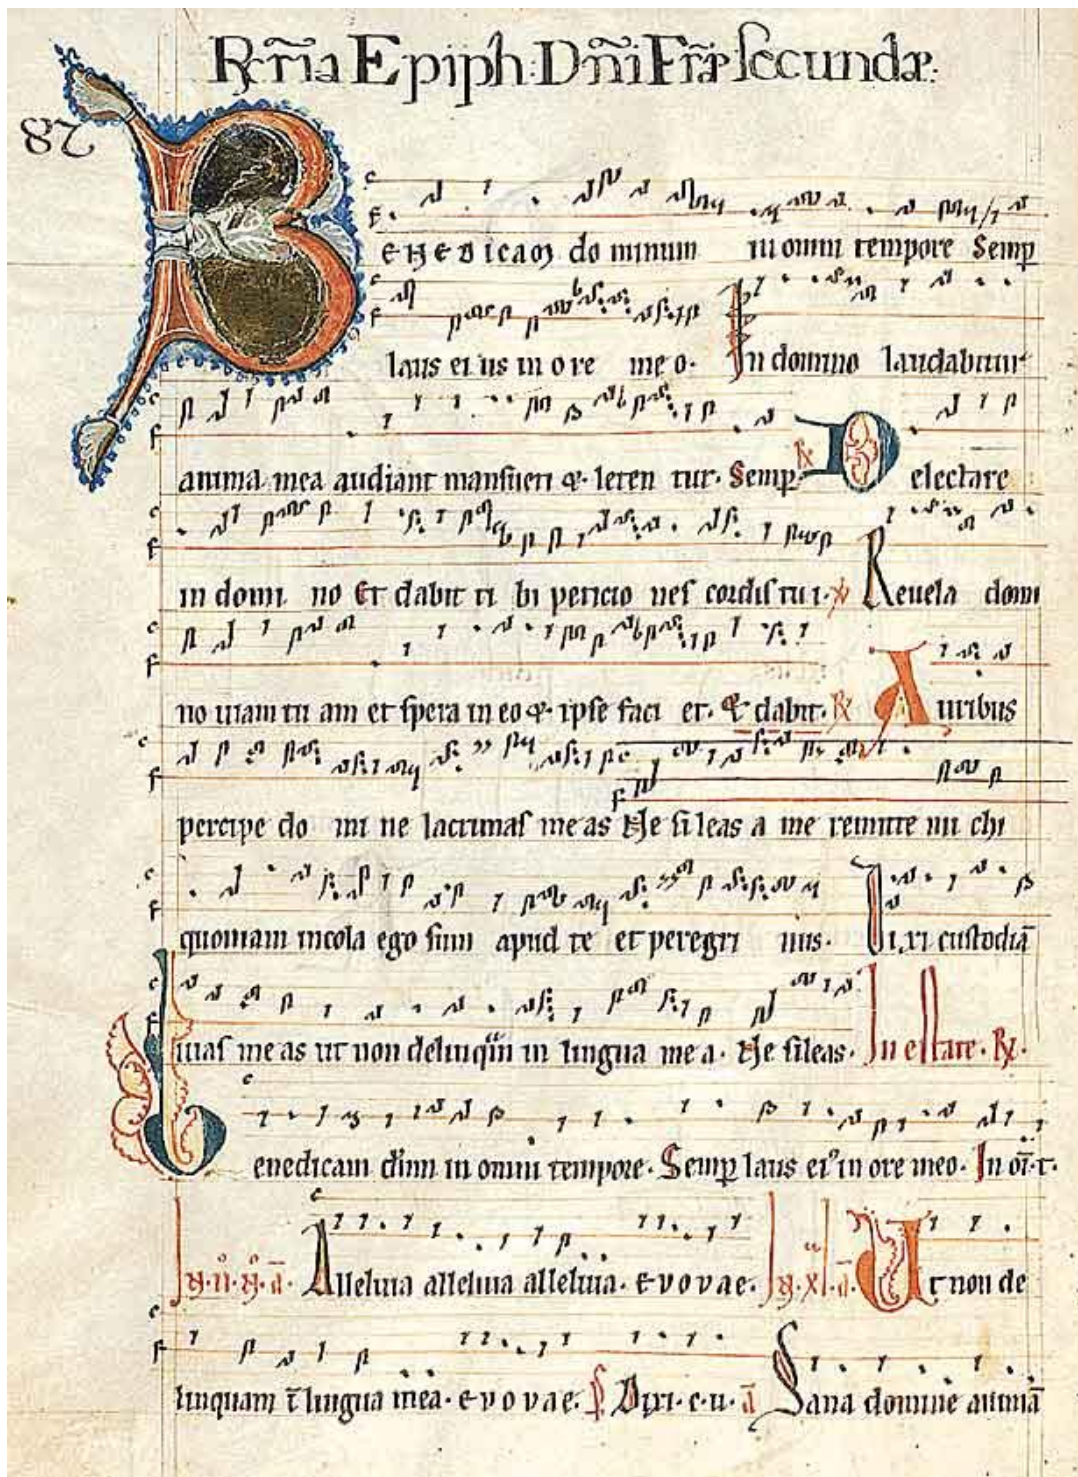 R. ĩa Epiph: Dñi Fr̃a secundæ:
82
BENEDICAM do minum in omni tempore Semp
laus ei us in ore me o. In domino laudabitur
anima mea audiant mansueti & leten tur. Semp. R Delectare
in domi no Et dabit ti bi peticio nes cordis tu i. V Reuela domi
no uiam tu am et spera in eo & ipse faci et. & dabit. R Auribus
percipe do mi ne lacrimas me as Ne si leas a me remitte mi chi
quoniam incola ego sum apud te et peregri nus. Dixi custodiã
uias me as ut non delinquã in lingua me a. Ne sileas. In estate. R.
Benedicam dñm in omni tempore. Semp laus ei' in ore meo. In oĩ. t.
In .ii. N. ã. Alleluia alleluia alleluia. evovae. In .xl. ã. Ut non de
linquam ĩ lingua mea. evovae. Dixi. c. u. ã Sana domine animã